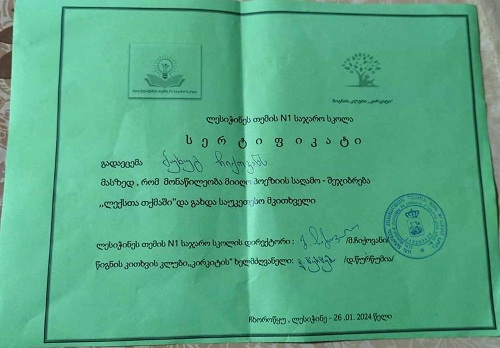 წიგნის კლუბი „კირკიტი"
ლესიჭინეს თემის N1 საჯარო სკოლა
ს ე რ ტ ი ფ ი კ ა ტ ი
გადაეცემა
მასზედ , რომ მონაწილეობა მიიღო პოეზიის საღამო - შეჯიბრება
,,ლექსთა თქმაში"და გახდა საუკეთესო მკითხველი
ლესიჭინეს თემის N1 საჯარო სკოლის დირექტორი : /მ.ჩიქოვანი/
წიგნის კითხვის კლუბი,,კირკიტის" ხელმძღვანელი: /დ.წურწუმია/
ჩხოროწყუ , ლესიჭინე - 26 .01. 2024 წელი